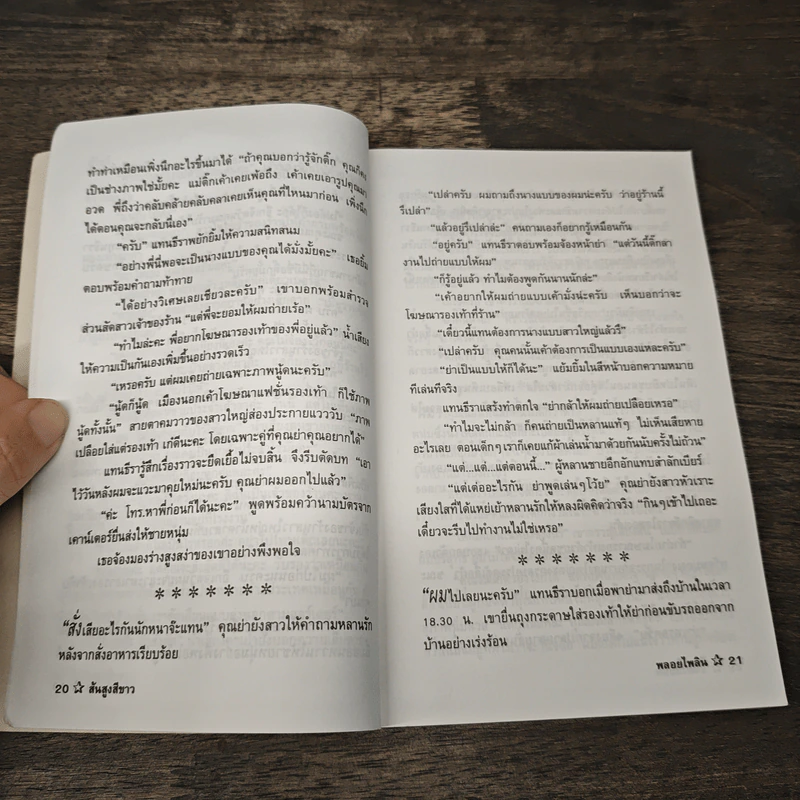 ทำท่าเหมือนเพิ่งนึกอะไรขึ้นมาได้ “ถ้าคุณบอกว่ารู้จักติ๊ก คุณก็คง
เป็นช่างภาพใช่มั้ยคะ แม่ติ๊กเค้าเคยเพ้อถึง เค้าเคยเอารูปคุณมา
อวด พี่ถึงว่าคลับคล้ายคลับคลาเคยเห็นคุณที่ไหนมาก่อน เพิ่งนึก
ได้ตอนคุณจะกลับนี่เอง”
“ครับ” แทนธีราพยักยิ้มให้ความสนิทสนม
“อย่างพี่นี่พอจะเป็นนางแบบของคุณได้มั่งมั้ยคะ” เธอยิ้ม
ตอบพร้อมคำถามท้าทาย
“ได้อย่างวิเศษเลยเชียวละครับ” เขาบอกพร้อมสำรวจ
ส่วนสัดสาวเจ้าของร้าน “แต่พี่จะยอมให้ผมถ่ายเร้อ”
“ทำไมล่ะคะ พี่อยากโฆษณารองเท้าของพี่อยู่แล้ว” น้ำเสียง
ให้ความเป็นกันเองเพิ่มขึ้นอย่างรวดเร็ว
“เหรอครับ แต่ผมเคยถ่ายเฉพาะภาพนู้ดนะครับ”
“นู้ดก็นู้ด เมืองนอกเค้าโฆษณาแฟชั่นรองเท้า ก็ใช้ภาพ
นู้ดทั้งนั้น” สายตาคมวาวของสาวใหญ่ส่องประกายแวววับ “ภาพ
เปลือยใส่แต่รองเท้า เก๋ดีนะคะ โดยเฉพาะคู่ที่คุณย่าคุณอยากได้”
แทนธีรารู้สึกเรื่องราวจะยืดเยื้อไม่จบสิ้น จึงรีบตัดบท “เอา
ไว้วันหลังผมจะแวะมาคุยใหม่นะครับ คุณย่าผมออกไปแล้ว”
“ค่ะ โทร.หาพี่ก่อนก็ได้นะคะ” พูดพร้อมความนามบัตรจาก
เคาน์เตอร์ยื่นส่งให้ชายหนุ่ม
เธอจ้องมองร่างสูงสง่าของเขาอย่างพึงพอใจ
* * * * * * *
“สั่งเสียอะไรกันนักหนาจ๊ะแทน” คุณย่ายังสาวให้คำถามหลานรัก
หลังจากสั่งอาหารเรียบร้อย
20 ☆ ส้นสูงสีขาว
“เปล่าครับ ผมถามถึงนางแบบของผมน่ะครับ ว่าอยู่ร้านนี้
รึเปล่า”
“แล้วอยู่รึเปล่าล่ะ” คนถามเองก็อยากรู้เหมือนกัน
“อยู่ครับ” แทนธีราตอบพร้อมจ้องหน้าย่า “แต่วันนี้ติ๊กลา
งานไปถ่ายแบบให้ผม”
“ก็รู้อยู่แล้ว ทำไมต้องพูดกันนานนักล่ะ”
“เค้าอยากให้ผมถ่ายแบบเค้ามั่งน่ะครับ เห็นบอกว่าจะ
โฆษณารองเท้าที่ร้าน”
“เดี๋ยวนี้แทนต้องการนางแบบสาวใหญ่แล้วรึ”
“เปล่าครับ คุณคนนั้นเค้าต้องการเป็นแบบเองแหละครับ”
“ย่าเป็นแบบให้ก็ได้นะ” แย้มยิ้มในสีหน้าบอกความหมาย
ทีเล่นทีจริง
แทนธีราแสร้งทำตกใจ “ย่ากล้าให้ผมถ่ายเปลือยเหรอ”
“ทำไมจะไม่กล้า ก็คนถ่ายเป็นหลานแท้ๆ ไม่เห็นเสียหาย
อะไรเลย ตอนเด็กๆเราก็เคยแก้ผ้าเล่นน้ำมาด้วยกันนับครั้งไม่ถ้วน”
“แต่...แต่...แต่ตอนนี้...” ผู้หลานชายอึกอักแทบสำลักเบียร์
“แต่เต่ออะไรกัน ย่าพูดเล่นๆโว้ย” คุณย่ายังสาวหัวเราะ
เสียงใสที่ได้แหย่เย้าหลานรักให้หลงผิดคิดว่าจริง “กินๆเข้าไปเถอะ
เดี๋ยวจะรีบไปทำงานไม่ใช่เหรอ”
* * * * * * *
“ผมไปเลยนะครับ” แทนธีราบอกเมื่อพาย่ามาส่งถึงบ้านในเวลา
18.30 น. เขายื่นถุงกระดาษใส่รองเท้าให้ย่าก่อนขับรถออกจาก
บ้านอย่างเร่งร้อน
พลอยไพลิน ☆ 21